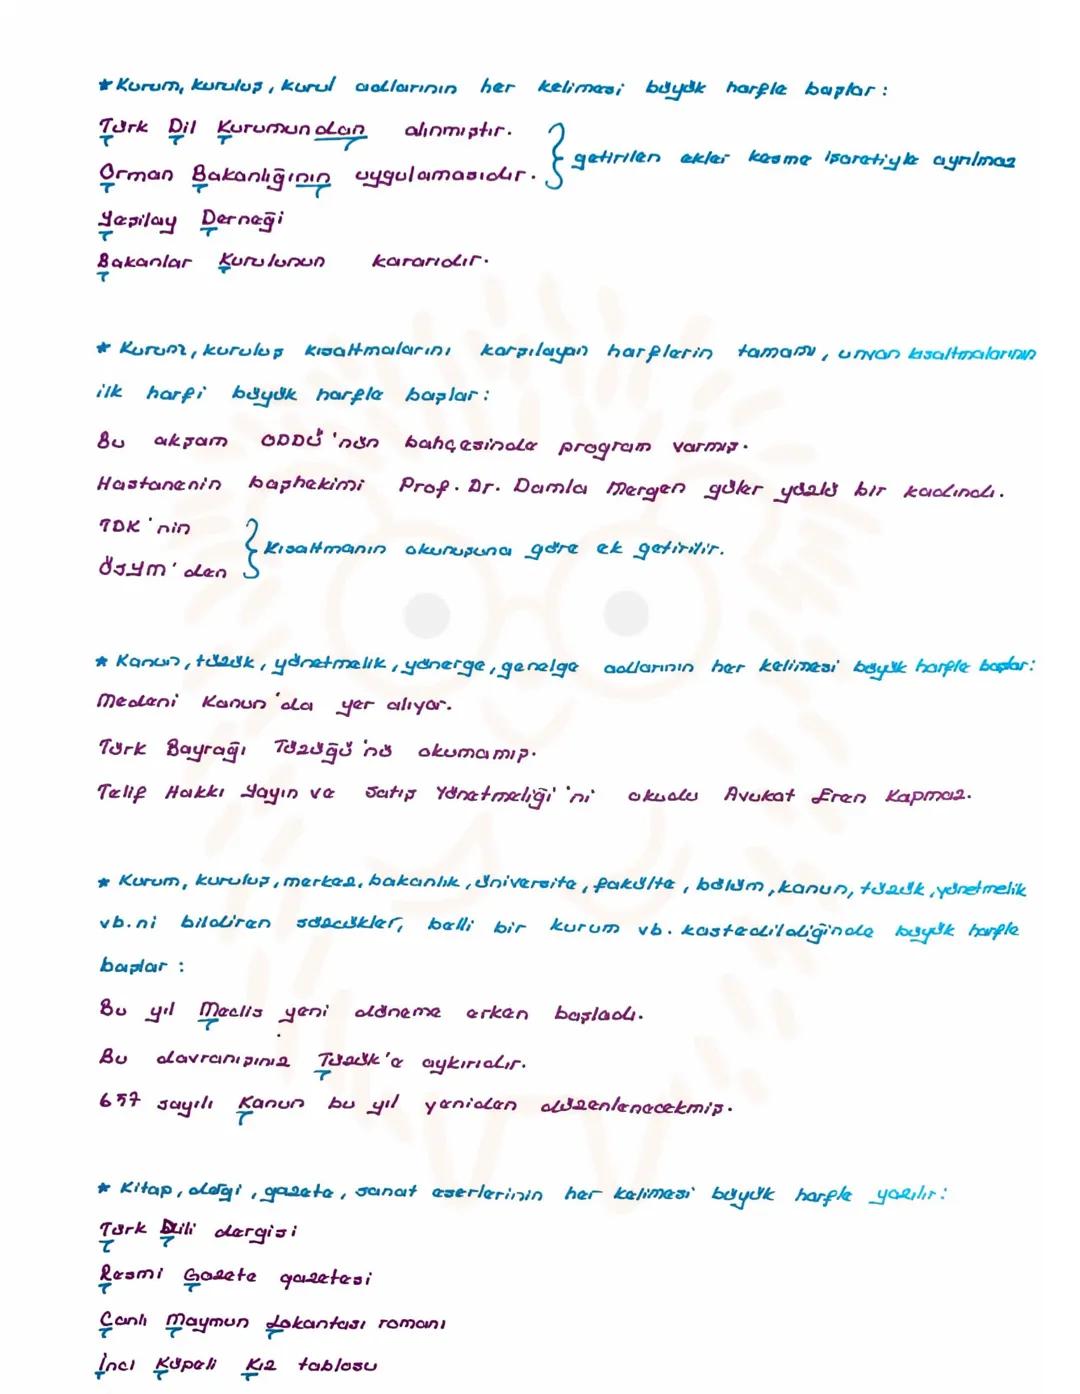 * Kurum, kuruluş, kurul adlarının her kelimesi büyük harfle başlar:
Türk Dil Kurumundan alınmıştır.
Orman Bakanlığının uygulamasıdır.
} getirilen ekler kesme işaretiyle ayrılmaz
Yeşilay Derneği
Bakanlar Kurulunun kararıdır.
* Kurum, kuruluş kısaltmalarını karşılayan harflerin tamamı, unvan kısaltmalarının
ilk harfi büyük harfle başlar:
Bu akşam ODDÜ'nün bahçesinde program varmış.
Hastanenin başhekimi Prof. Dr. Damla Mergen güler yüzlü bir kadındı.
TDK'nin
ÖSYM'den
} Kısaltmanın okunuşuna göre ek getirilir.
* Kanun, tüzük, yönetmelik, yönerge, genelge adlarının her kelimesi büyük harfle başlar:
Medeni Kanun'da yer alıyor.
Türk Bayrağı Tüzüğü'nü okumamış.
Telif Hakkı Yayın ve Satış Yönetmeliği'ni okudu Avukat Eren Kapmaz.
* Kurum, kuruluş, merkez, bakanlık, üniversite, fakülte, bölüm, kanun, tüzük, yönetmelik
vb. ni bildiren sözcükler, belli bir kurum vb. kastedildiğinde büyük harfle
başlar:
Bu yıl Meclis yeni döneme erken başladı.
Bu davranışınız Tüzük'e aykırıdır.
657 sayılı Kanun bu yıl yeniden düzenlenecekmiş.
* Kitap, dergi, gazete, sanat eserlerinin her kelimesi büyük harfle yazılır:
Türk Dili dergisi
Resmi Gazete gazetesi
Canlı Maymun Lokantası romanı
İnci Küpeli Kız tablosu